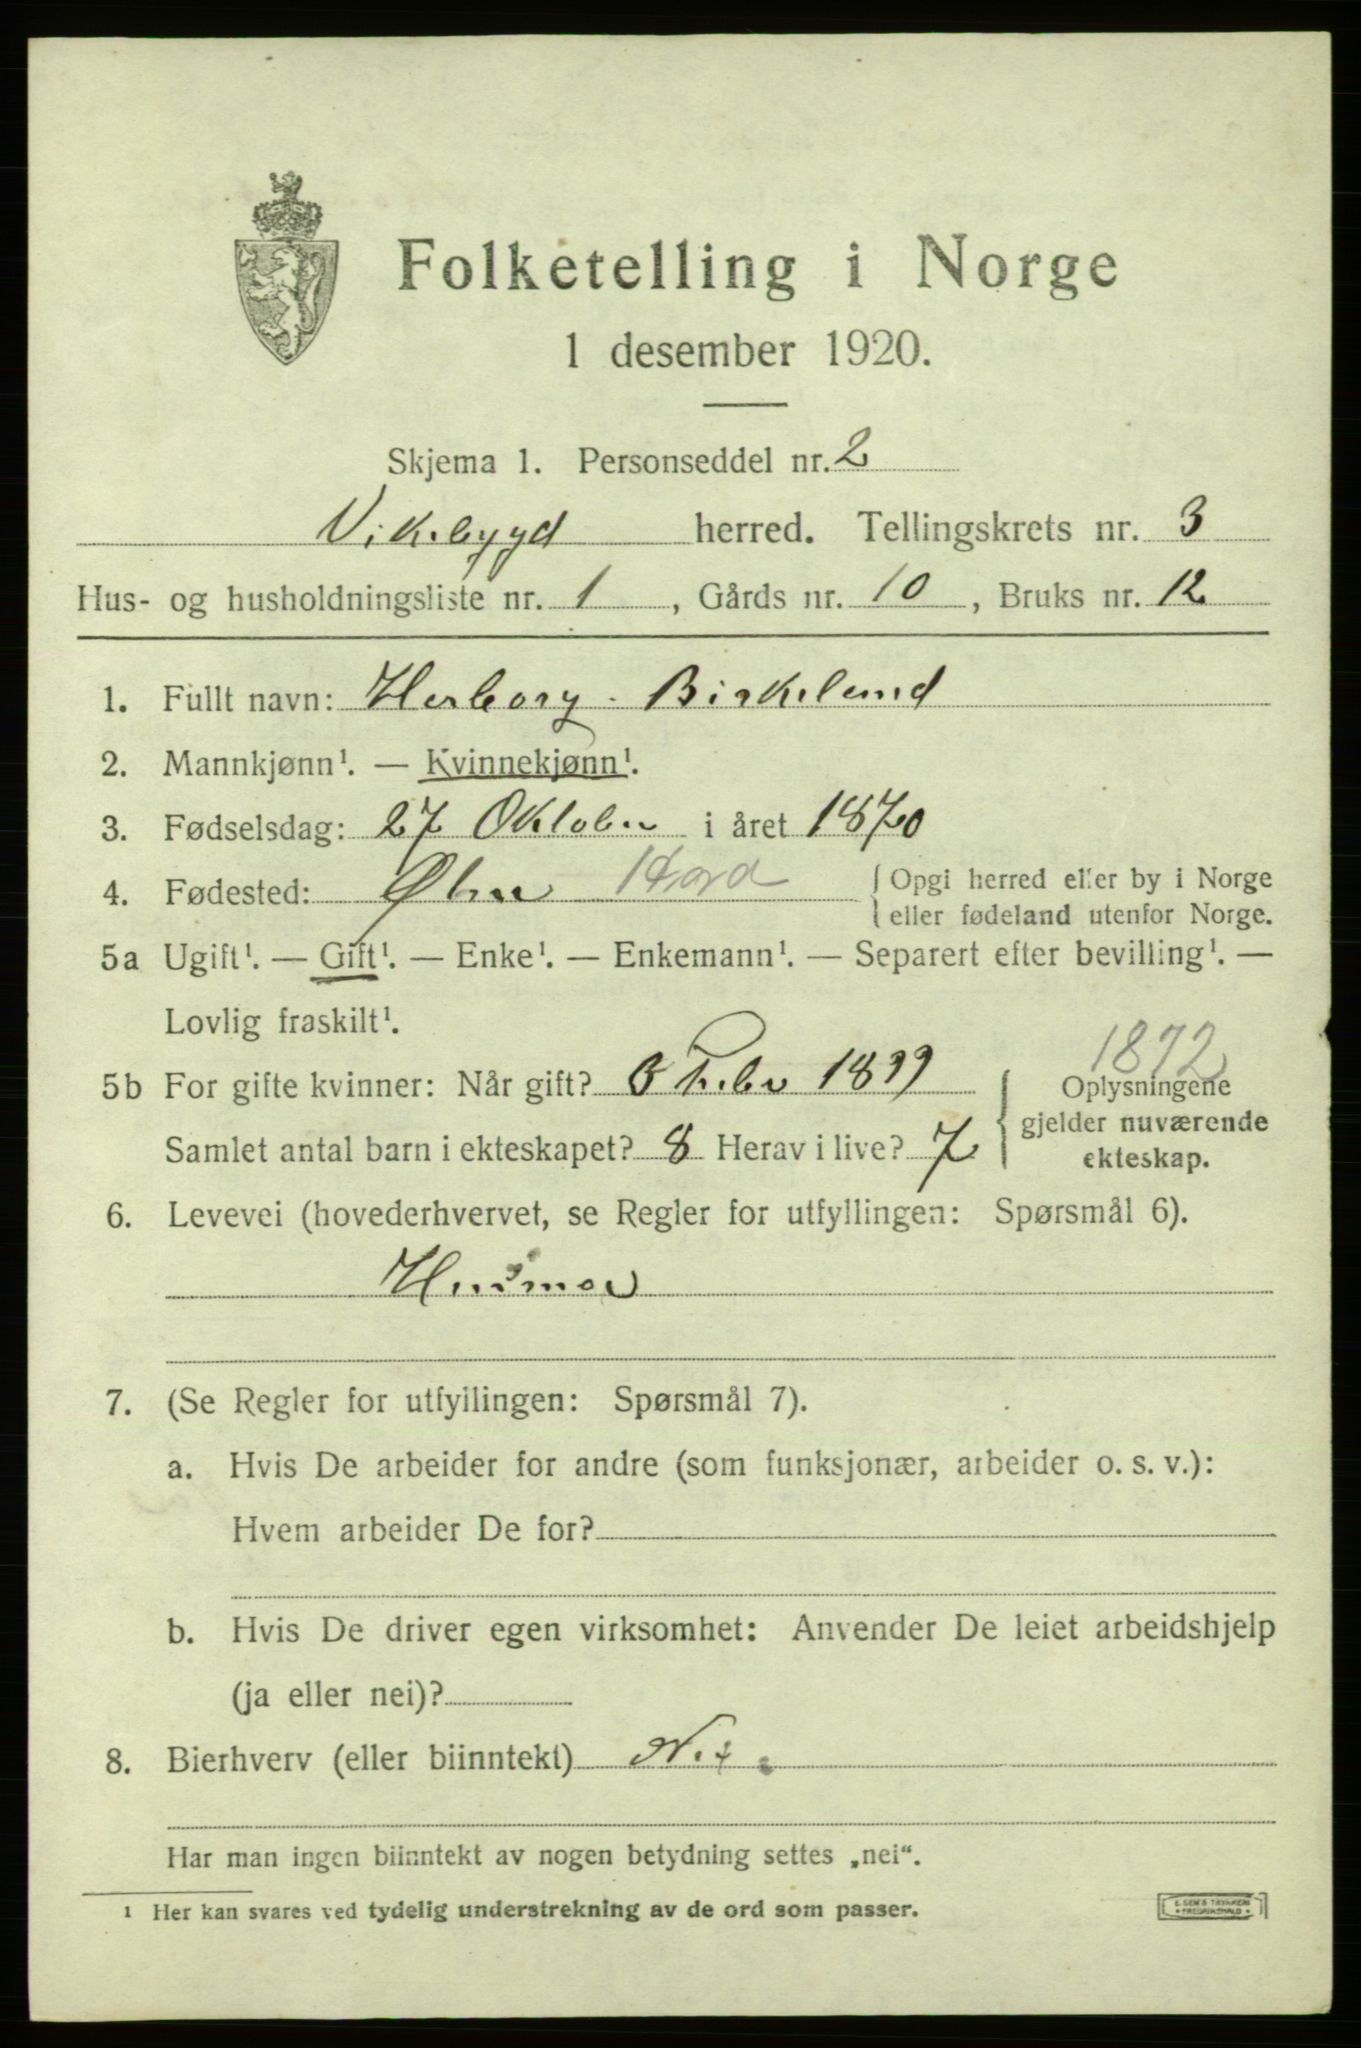 Folketelling i Norge
1 desember 1920.
Skjema 1. Personseddel nr. 2
Vikebygd herred. Tellingskrets nr. 3
Hus- og husholdningsliste nr. 1, Gårds nr. 10, Bruks nr. 12
1. Fullt navn: Herborg Birkeland
2. Mannkjønn¹. — Kvinnekjønn¹.
3. Fødselsdag: 27 Oktober i året 1870
4. Fødested: Ølen Hord { Opgi herred eller by i Norge
eller fødeland utenfor Norge.
5a Ugift¹. — Gift¹. — Enke¹. — Enkemann¹. — Separert efter bevilling¹. —
Lovlig fraskilt¹.
1872
5b For gifte kvinner: Når gift? Febr 1899 { Oplysningene
gjelder nuværende
Samlet antal barn i ekteskapet? 8 Herav i live? 7
ekteskap.
6. Levevei (hovederhvervet, se Regler for utfyllingen: Spørsmål 6).
Husmor
7. (Se Regler for utfyllingen: Spørsmål 7).
a. Hvis De arbeider for andre (som funksjonær, arbeider o. s. v.):
Hvem arbeider De for?
b. Hvis De driver egen virksomhet: Anvender De leiet arbeidshjelp
(ja eller nei)?
8. Bierhverv (eller biinntekt) Nei
Har man ingen biinntekt av nogen betydning settes „nei“.
¹ Her kan svares ved tydelig understrekning av de ord som passer.